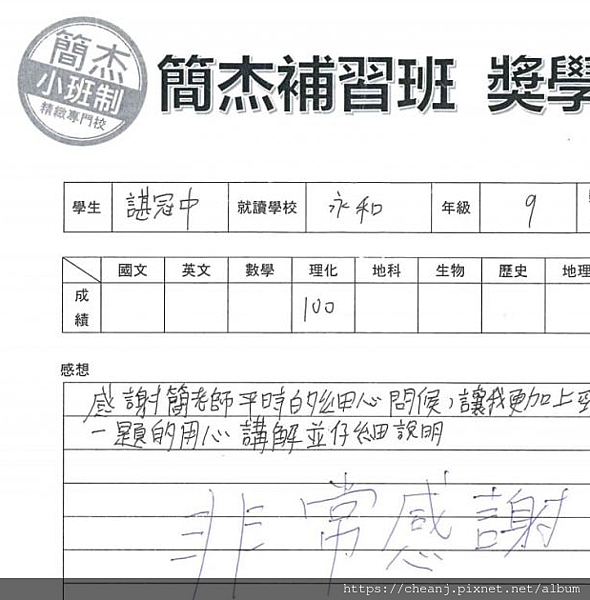 簡杰
小班制
精緻專門校
簡杰補習班 獎學
學生 諶冠中 就讀學校 永和 年級 9
國文 英文 數學 理化 地科 生物 歷史 地理
成績 100
感想
感謝簡老師平時的細心問候,讓我更加上
一題的用心講解並仔細說明
非常感謝
https://cheanj.pixnet.net/album